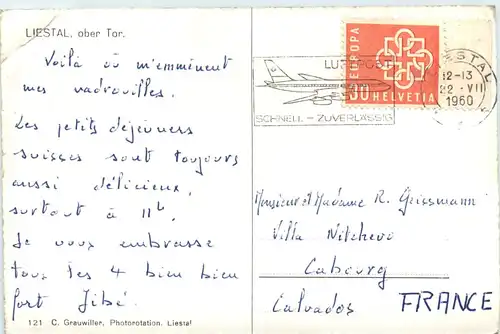 LIESTAL, ober Tor.
Voilà où m'emminent
mes vadrouilles.
Les petits déjeuners
suisses sont toujours
aussi délicieux,
surtout à 11h.
Je vous embrasse
tous les 4 bien bien
fort Jibé.
121 C. Grauwiller, Photorotation, Liestal
LUFTPOST
SCHNELL - ZUVERLÄSSIG
EUROPA
50
HELVETIA
LIESTAL
12-13
22. VII
1960
Monsieur et Madame R. Geissmann
Villa Nitchevo
Cabourg
Calvados FRANCE